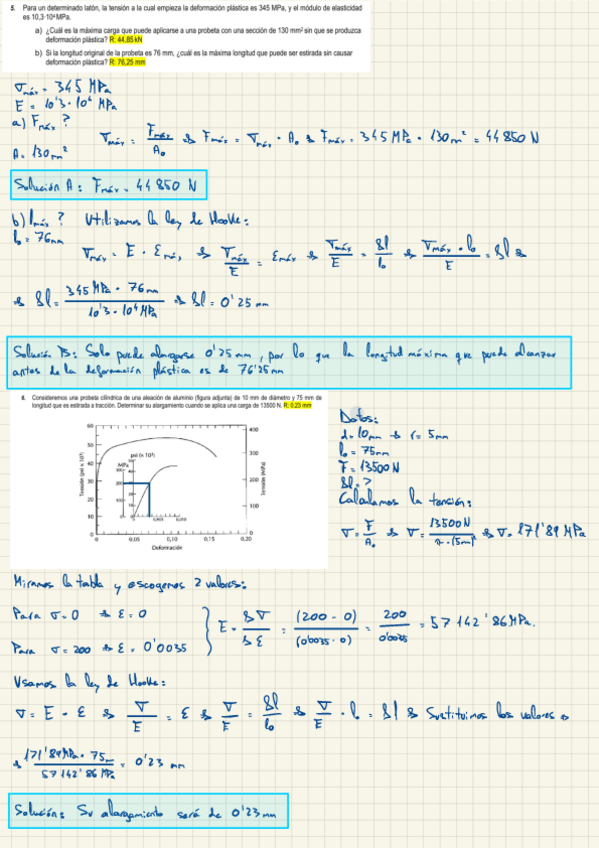 5. Para un determinado latón, la tensión a la cual empieza la deformación plástica es 345 MPa, y el módulo de elasticidad
es 10,3·10⁴ MPa.
a) ¿Cuál es la máxima carga que puede aplicarse a una probeta con una sección de 130 mm² sin que se produzca
deformación plástica? R: 44,85 kN
b) Si la longitud original de la probeta es 76 mm, ¿cuál es la máxima longitud que puede ser estirada sin causar
deformación plástica? R: 76,25 mm
σmáx = 345 MPa
E = 10'3 · 10⁴ MPa
a) Fmáx?
A = 130 mm²
σmáx = Fmáx / A₀ → Fmáx = σmáx · A₀ → Fmáx = 345 MPa · 130 mm² = 44 850 N
Solución A: Fmáx = 44 850 N
b) lmáx? Utilizamos la ley de Hooke:
l₀ = 76mm
σmáx = E · Emáx → σmáx / E = Emáx → σmáx / E = δl / l₀ → σmáx · l₀ / E = δl →
→ δl = 345 MPa · 76mm / 10'3 · 10⁴ MPa → δl = 0'25 mm
Solución B: Solo puede alargarse 0'25 mm, por lo que la longitud máxima que puede alcanzar
antes de la deformación plástica es de 76'25mm
6. Consideremos una probeta cilíndrica de una aleación de aluminio (figura adjunta) de 10 mm de diámetro y 75 mm de
longitud que es estirada a tracción. Determinar su alargamiento cuando se aplica una carga de 13500 N. R: 0,23 mm
Datos:
d = 10mm → r = 5mm
l₀ = 75mm
F = 13500 N
δl = ?
Calculamos la tensión:
σ = F / A₀ → σ = 13500N / π · (5m)² → σ = 171'89 MPa
60
50
40
30
20
10
0
400
300
200
100
0
psi (x 10³)
MPa
300
200
100
0
0,005
0,010
Tensión (psi x 10³)
Tensión (MPa)
0
0,05
0,10
0,15
0,20
Deformación
Miramos la tabla y escogemos 2 valores:
Para σ = 0 → ε = 0
Para σ = 200 → ε = 0'0035
E = δσ / δε = (200 - 0) / (0'0035 - 0) = 200 / 0'0035 = 57 142'86 MPa.
Usamos la ley de Hooke:
σ = E · ε → σ / E = ε → σ / E = δl / l₀ → σ / E · l₀ = δl → Sustituimos los valores →
→ 171'89MPa · 75m / 57 142'86 MPa = 0'23 mm
Solución: Su alargamiento será de 0'23 mm